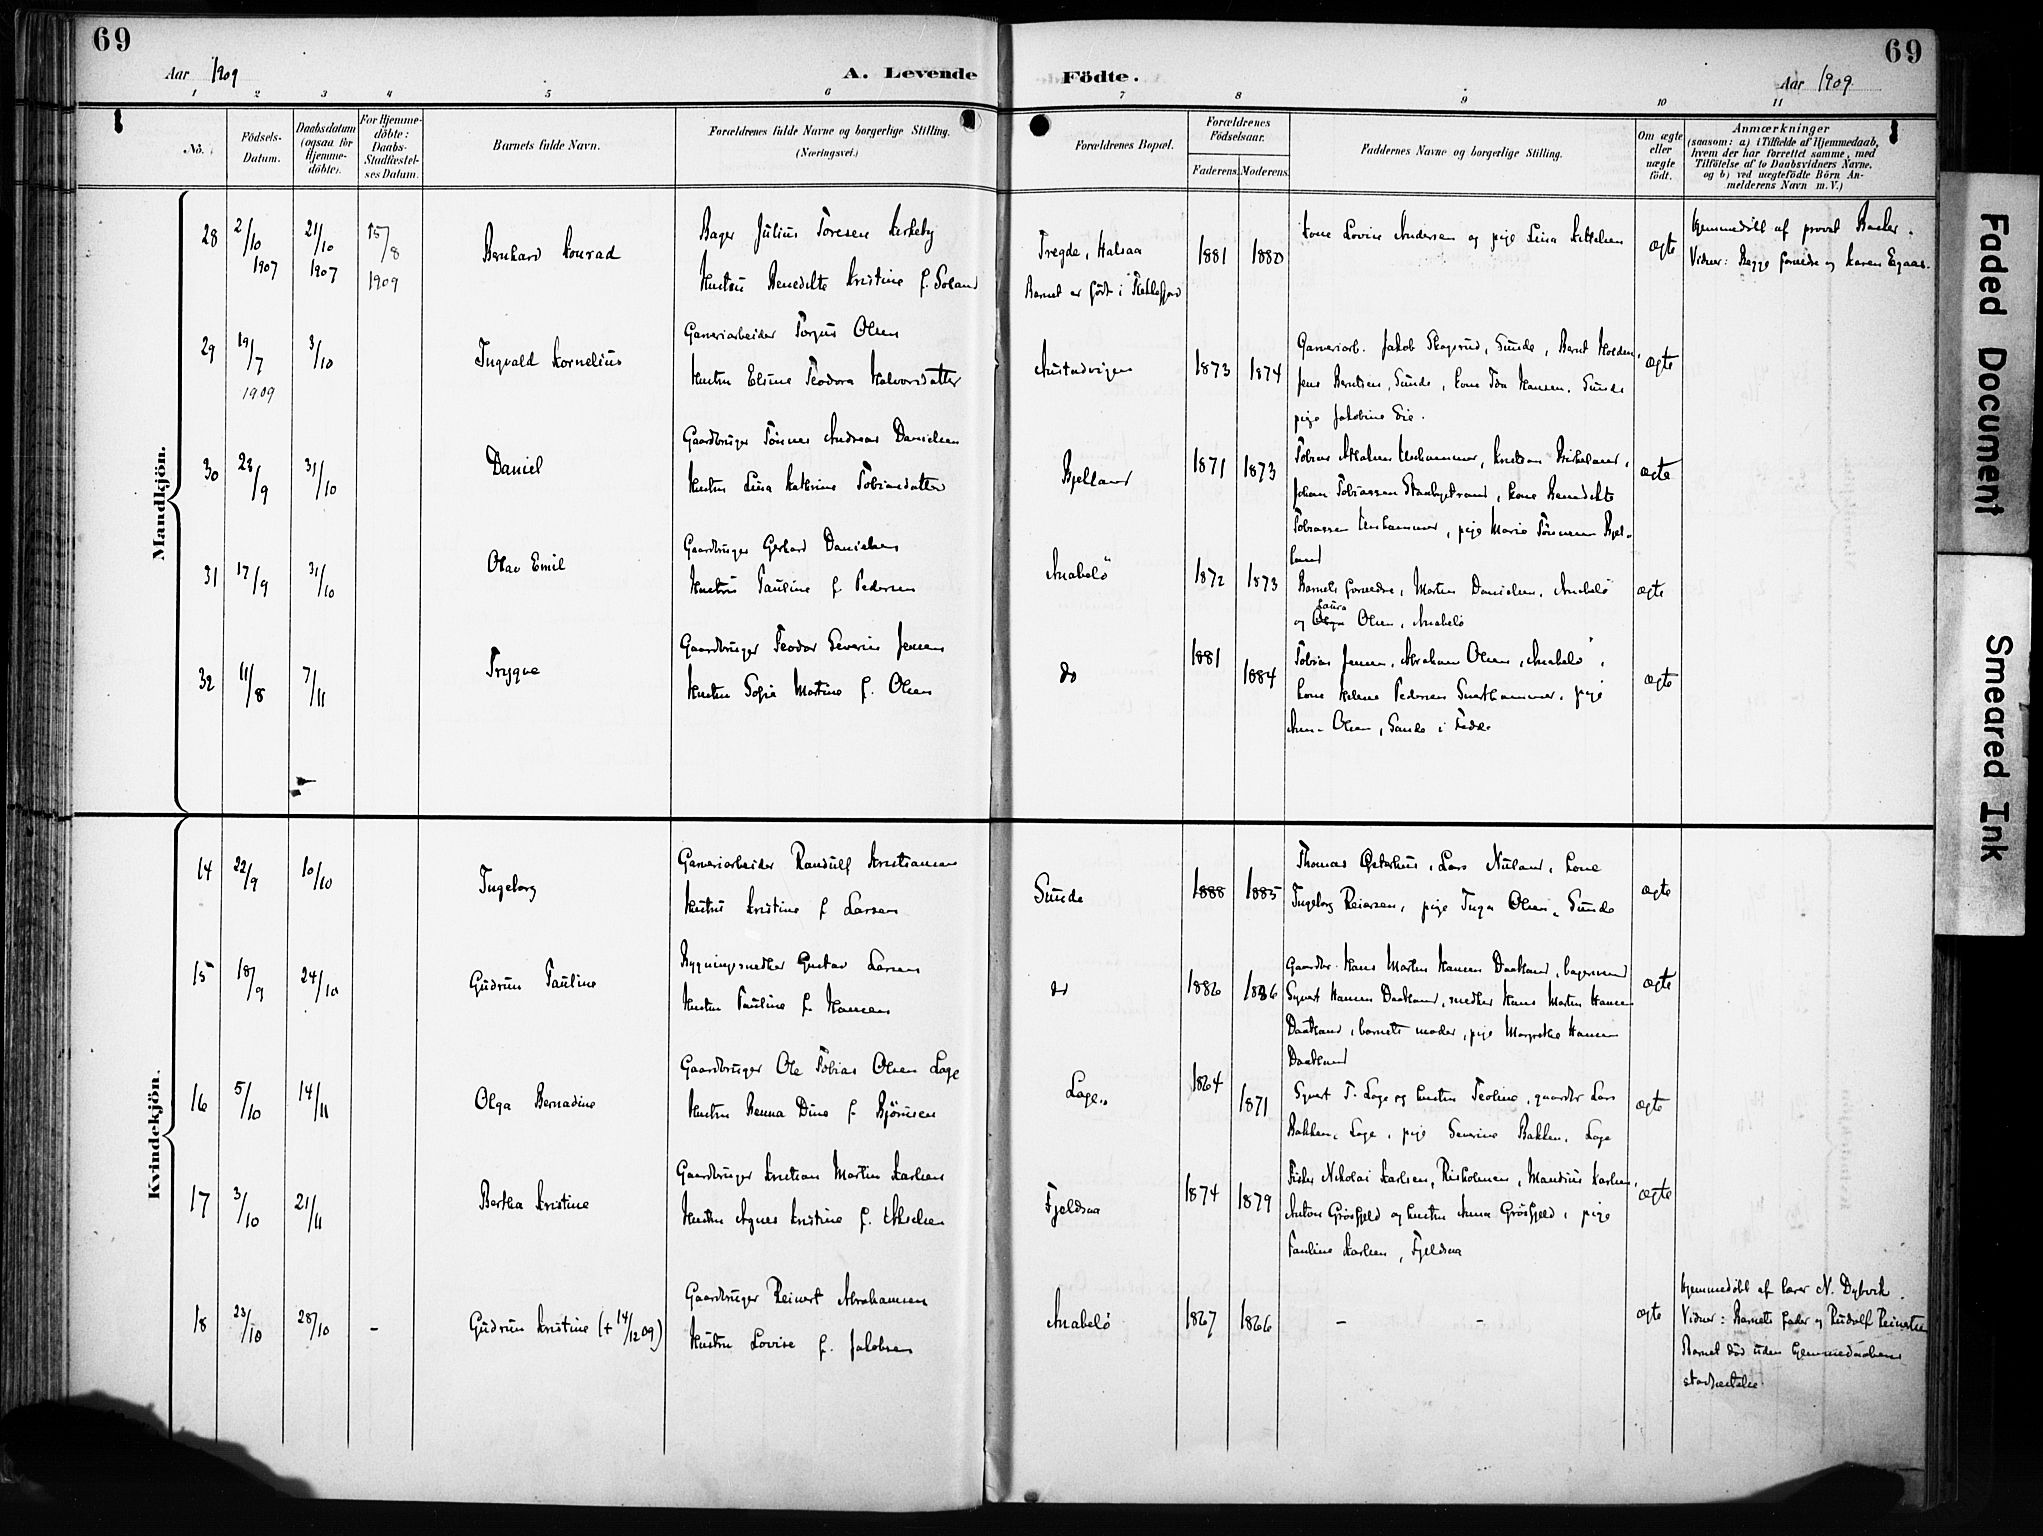 69
69
Aar 1909
A. Levende Födte.
Aar 1909.
1 2 3 4 5 6 7 8 9 10 11
No.
Födsels-Datum.
Daabsdatum (ogsaa for Hjemme-döbte).
For Hjemme-döbte: Daabs-Stadfæstel-ses Datum.
Barnets fulde Navn.
Forældrenes fulde Navne og borgerlige Stilling. (Næringsvei.)
Forældrenes Bopæl.
Forældrenes Födselsaar.
Faderens. Moderens.
Faddernes Navne og borgerlige Stilling.
Om ægte eller uægte födt.
Anmærkninger
(saasom: a) i Tilfælde af Hjemmedaab,
hvem der har forrettet samme, med
Tilföielse af to Daabsvidners Navne,
og b) ved uægtefödte Börn An-
melderens Navn m. V.)
Mandkjön.
28 2/10 1907 21/10 1907 15/8 1909
Bernhard Konrad
Bager Julius Toresen Kirkeby
Hustru Benedikte Kristine f. Poland
Tregde, Halsaa
Barnet er født i Flekkefjord
1881 1880
Kone Lovise Andersen og pige Lina Kittelsen
ægte
Hjemmedøbt af provst Barler.
Vidner: Begge forældre og Karen Egaas.
29 19/7 1909 3/10
Ingvald Kornelius
Garveriarbeider Torjus Olsen
Hustru Elsine Teodora Halvorsdatter
Austadvigen
1873 1874
Garveriarb. Jakob Skogsrud, Sunde, Bernt Holden,
Jens Berntsen, Sunde, kone Ida Hansen, Sunde
pige Jakobine Eie.
ægte
30 23/9 31/10
Daniel
Gaardbruger Tønnes Andreas Danielsen
Hustru Lina Kathrine Tobiasdatter
Bjelland
1871 1873
Johan Tobiassen Stanbystrand, kone Benedikte
Tobiassen Urhammer, pige Marie Tønnesen Bjel-
land
ægte
31 17/9 31/10
Olav Emil
Gaardbruger Gerhard Danielsen
Hustru Pauline f Pedersen
Anabelö
1872 1873
Barnets forældre, Martin Danielsen, Anabelö
Laura
og Olga Olsen, Anabelö
ægte
32 11/8 7/11
Trygve
Gaardbruger Teodor Severin Jensen
Hustru Sofie Martine f. Olsen
do
1881 1884
Tobias Jensen, Abraham Olsen, Anabelö,
kone Helene Pedersen Svarthammer, pige
Anna Olsen, Sande i Fedde
ægte
Kvindekjön.
14 22/9 10/10
Ingeborg
Garveriarbeider Randulf Kristiansen
Hustru Kristine f Larsen
Sunde
1888 1885
Thomas Østerhus, Lars Nuland, kone
Ingeborg Reiersen, pige Inga Olsen, Sunde
ægte
15 18/9 24/10
Gudrun Pauline
Bygningssnedker Gustav Larsen
Hustru Pauline f. Hansen
do
1886 1886
Gaardbr. Hans Martin Hansen Daatland, bagersvend
Sigvart Hansen Daatland, snedker Hans Martin Hansen
Daatland, barnets moder, pige Margrethe Hansen
Daatland
ægte
16 5/10 14/11
Olga Bernadine
Gaardbruger Ole Tobias Olsen Loge
Hustru Benna Dine f Bjørnsen
Loge
1864 1871
Sigvart T. Loge og hustru Teoline, gaardbr Lars
Bakken, Loge, pige Severine Bakken, Loge
ægte
17 3/10 21/11
Bertha Kristine
Gaardbruger Kristian Martin Karlsen
Hustru Agnes Kristine f. Akselsen
Fjeldsaa
1874 1879
Fisker Nikolai Karlsen, Risholmen, Mandius Karlsen,
Anton Grøsfjeld og hustru Anna Grøsfjeld, pige
Pauline Karlsen, Fjeldsaa
ægte
18 23/10 28/10 -
Gudrun Kristine (+ 14/12 09)
Gaardbruger Reinert Abrahamsen
Hustru Lovise f. Jakobsen
Anabelö
1867 1866
- -
ægte
Hjemmedøbt af lærer N. Dybvik.
Vidner: Barnets fader og Rudolf Reinertsen
Barnet død uden hjemmedaabens
stadfæstelse
Faded Document
Smeared Ink